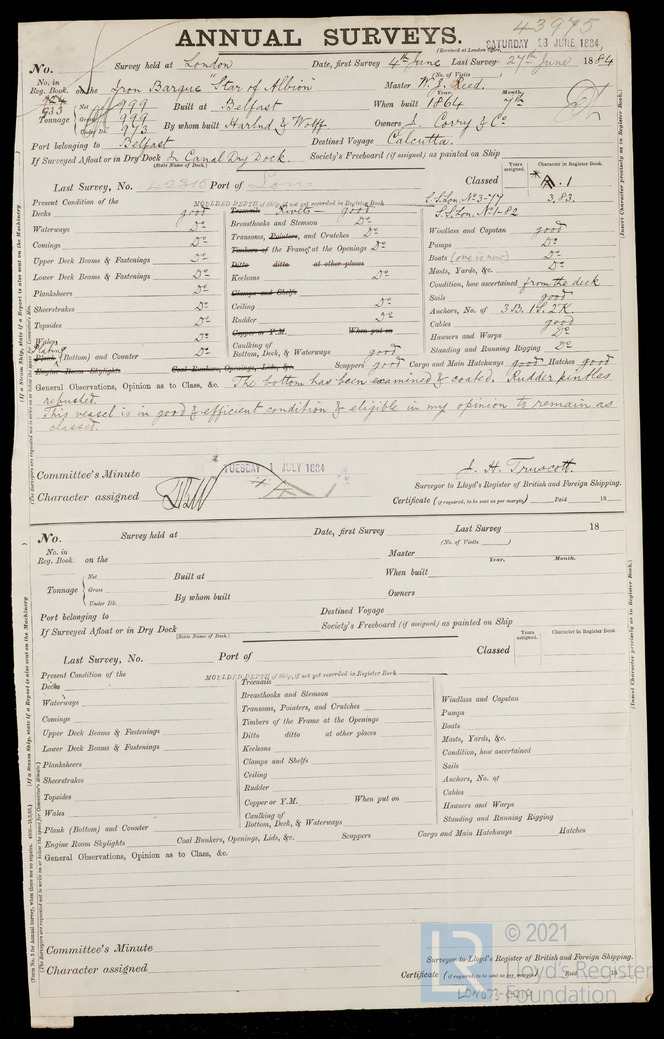 43975
ANNUAL SURVEYS.
(Received at London Office, SATURDAY 28 JUNE 1884
No. Survey held at London Date, first Survey 4th June Last Survey 27th June 1884
(No. of Visits
No. in Reg. Book. on the Iron Barque "Star of Albion" Master W. J. Reed.
933
Tonnage Net 999 Built at Belfast When built 1864 Year. Month. 7th
Gross 999
Under Dk. 973 By whom built Harlnd & Wolff Owners J. Corry & Co
Port belonging to Belfast Destined Voyage Calcutta.
If Surveyed Afloat or in Dry Dock In Canal Dry Dock. Society's Freeboard (if assigned) as painted on Ship
(State Name of Dock.)
Years assigned. Character in Register Book.
Last Survey, No. Port of Lon Classed A.1
3,83.
S.S.Lon. No 3-77
S.S.Lon. No 1-82
Present Condition of the MOULDED DEPTH of Ship, if not yet recorded in Register Book
Decks good Treenails Rivets good
Waterways Do Breasthooks and Stemson Do Windlass and Capstan good
Comings Do Transoms, Pointers, and Crutches Do Pumps Do
Timbers of the Frame at the Openings Do Boats (one is new) Do
Upper Deck Beams & Fastenings Do Ditto ditto at other places Masts, Yards, &c. Do
Lower Deck Beams & Fastenings Do Keelsons Do Condition, how ascertained from the deck
Planksheers Do Clamps and Shelfs Sails good
Sheerstrakes Do Ceiling Do Anchors, No. of 3 B. 1 S. 2 K.
Topsides Do Rudder Do Cables good
Wales Do Copper or Y.M. When put on Hawsers and Warps Do
Plating
Plank (Bottom) and Counter Do Caulking of Bottom, Deck, & Waterways good Standing and Running Rigging Do
Engine Room Skylights Coal Bunkers, Openings, Lids, &c. Scuppers good Cargo and Main Hatchways good Hatches good
General Observations, Opinion as to Class, &c. The bottom has been examined & coated. Rudder pintles
refusted.
This vessel is in good & efficient condition & eligible in my opinion to remain as
classed.
Committee's Minute TUESDAY 1 JULY 1884 J. H. Truscott.
Surveyor to Lloyd's Register of British and Foreign Shipping.
Character assigned
Certificate (if required, to be sent as per margin) Paid 18
No. Survey held at Date, first Survey Last Survey 18
(No. of Visits )
No. in Reg. Book. on the Master Year. Month.
Tonnage Net Built at When built
Gross
Under Dk. By whom built Owners
Port belonging to Destined Voyage
If Surveyed Afloat or in Dry Dock Society's Freeboard (if assigned) as painted on Ship
(State Name of Dock.)
Years assigned. Character in Register Book.
Last Survey, No. Port of Classed
Present Condition of the MOULDED DEPTH of Ship, if not yet recorded in Register Book
Decks Treenails
Waterways Breasthooks and Stemson Windlass and Capstan
Comings Transoms, Pointers, and Crutches Pumps
Timbers of the Frame at the Openings Boats
Upper Deck Beams & Fastenings Ditto ditto at other places Masts, Yards, &c.
Lower Deck Beams & Fastenings Keelsons Condition, how ascertained
Planksheers Clamps and Shelfs Sails
Sheerstrakes Ceiling Anchors, No. of
Topsides Rudder Cables
Wales Copper or Y.M. When put on Hawsers and Warps
Plank (Bottom) and Counter Caulking of Bottom, Deck, & Waterways Standing and Running Rigging
Engine Room Skylights Coal Bunkers, Openings, Lids, &c. Scuppers Cargo and Main Hatchways Hatches
General Observations, Opinion as to Class, &c.
Committee's Minute
Surveyor to Lloyd's Register of British and Foreign Shipping.
Character assigned
Certificate (if required, to be sent as per margin) Paid 18
LR © 2021
Lloyd's Register
Foundation
(Insert Character precisely as in Register Book.)
(If a Steam Ship, state if a Report is also sent on the Machinery
(Insert Character precisely as in Register Book.)
(If a Steam Ship, state if a Report is also sent on the Machinery